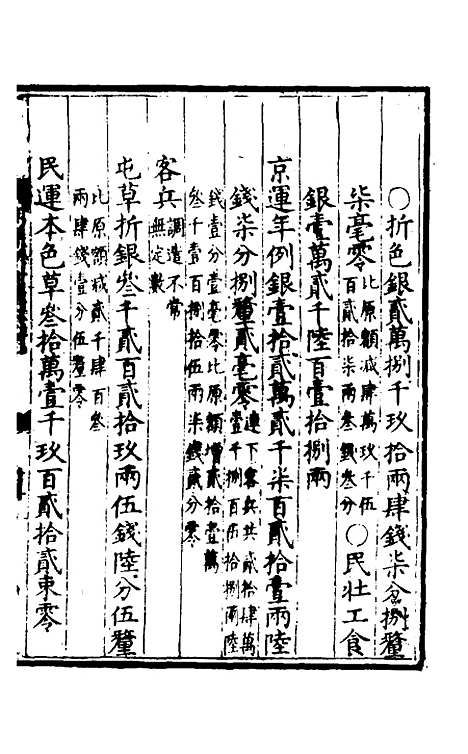 ○折色銀貳萬捌千玖拾兩肆錢柒分捌釐
柒毫零比原額減肆萬玖千伍百貳拾柒兩叁錢叁分○民壯工食
銀壹萬貳千陸百壹拾捌兩
京運年例銀壹拾貳萬貳千柒百貳拾壹兩陸
錢柒分捌釐貳毫零連下客兵共貳拾肆萬貳千捌百伍拾捌兩陸
錢壹分壹毫零比原額增貳拾壹萬叁千壹百捌拾伍兩柒錢貳分零
客兵調遣不常無定數
屯草折銀叁千貳百貳拾玖兩伍錢陸分伍釐
比原額減貳千肆百叁兩肆錢壹分伍釐零
民運本色草叁拾萬壹千玖百貳拾貳束零